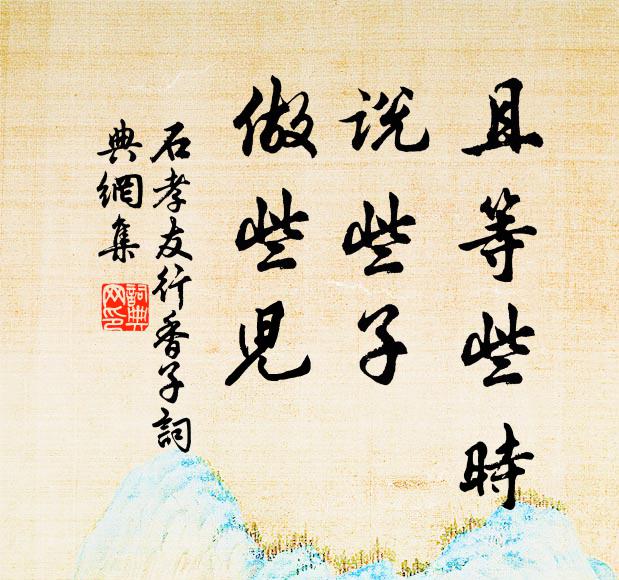 且等些時
說些子
做些兒
石孝友行香子詞
典網集
詞典網印